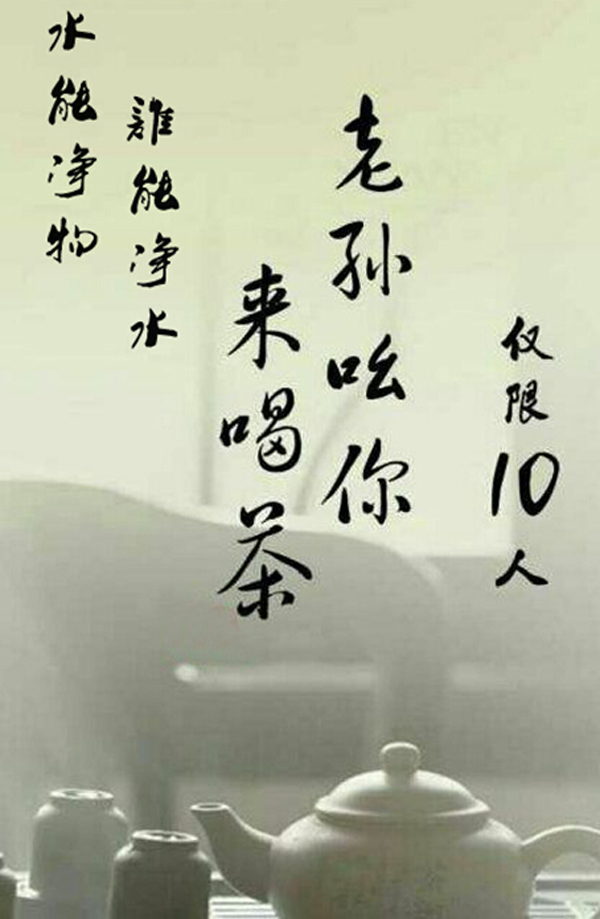 水能净物
誰能净水
老孙吆你
来喝茶
仅限10人